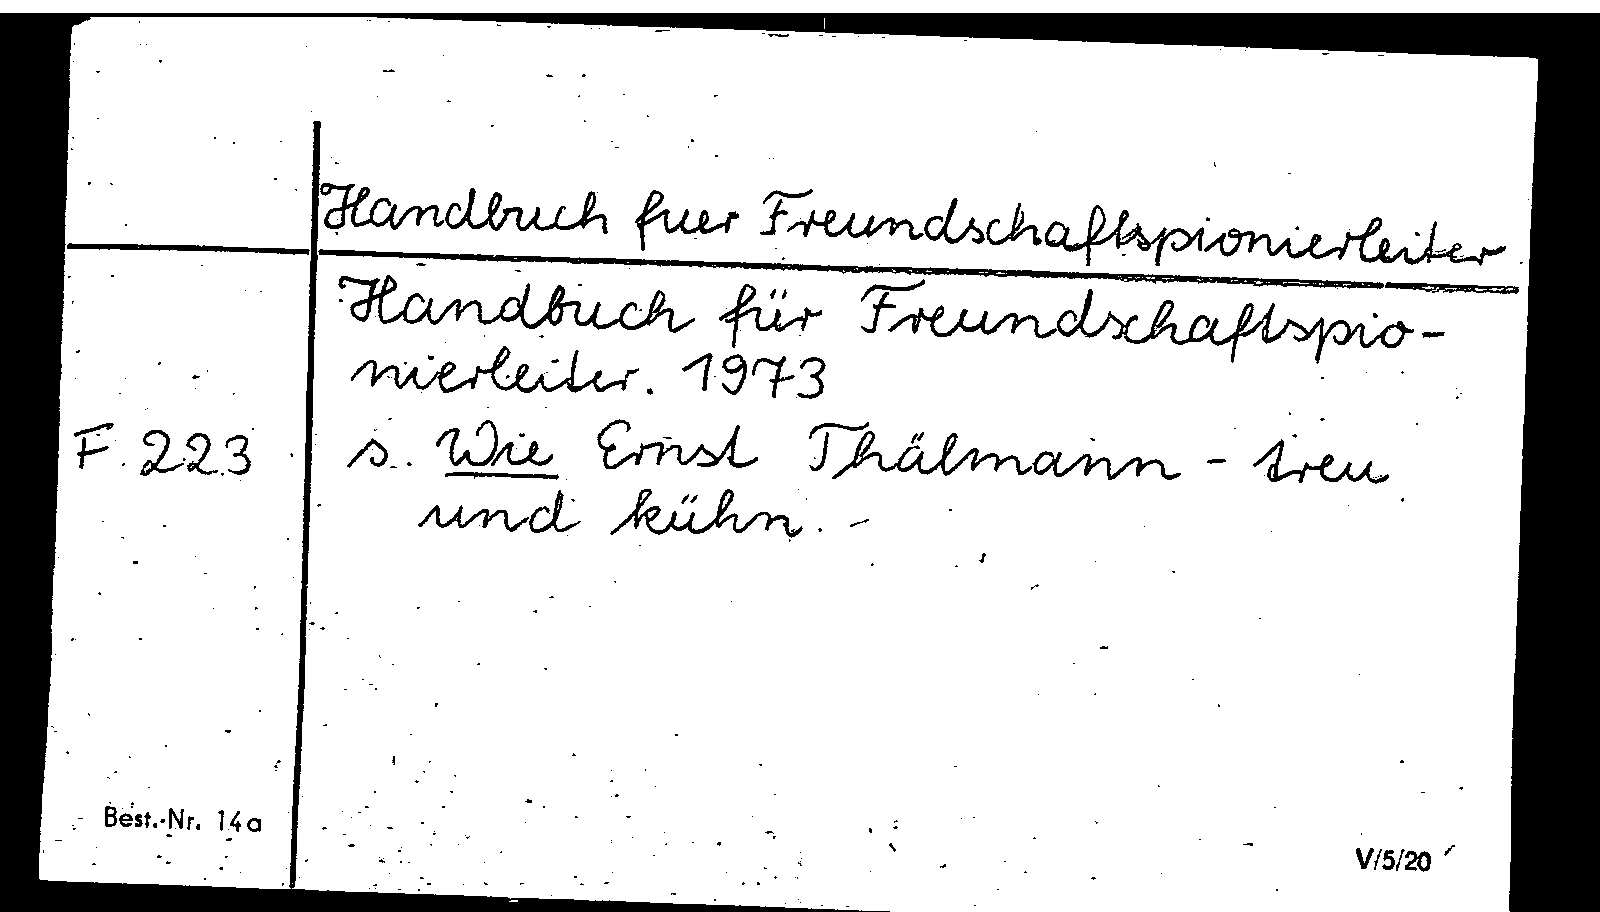 Handbuch fuer Freundschaftspionierleiter
Handbuch für Freundschaftspio-
nierleiter. 1973
F 223 s. Wie Ernst Thälmann - treu
und kühn. -
Best.-Nr. 14a
V/5/20